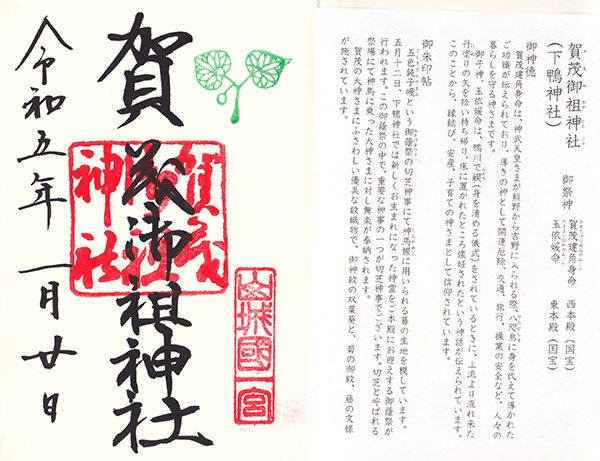 賀茂御祖神社
（下鴨神社）
御祭神　賀茂建角身命　西本殿（国宝）
玉依媛命　東本殿（国宝）
御神徳
賀茂建角身命は、神武天皇さまが熊野から吉野に入られる際、八咫烏に身を代えて導かれた
ご功績が伝えられており、導きの神として開運厄除、交通、旅行、操業の安全など、人々の
暮らしを守る神さまです。
御子神、玉依媛命は、鴨川で禊（身を清める儀式）をされているときに、上流より流れ来た
丹塗りの矢を拾い持ち帰り、床に置かれたところ懐妊されたという神話が伝えられています。
このことから、縁結び、安産、子育ての神さまとして信仰されています。
御朱印帖
五色鈍子幌という御蔭祭の切芝神事にて神馬に用いられる幕の生地を模しています。
五月十二日、下鴨神社では新しくお生まれになった神霊をご本殿にお迎えする御蔭祭が
行われます。この御蔭祭の中で、重要な神事の一つが切芝神事でございます。切芝と呼ばれる
祭場にて神馬に乗った大神さまに対し舞楽が奉納されます。
賀茂の大神さまにふさわしい優美な紋織物で、御神紋の双葉葵と、菊の御紋、藤の文様
が施されています。
山城國一宮
賀茂御祖神社
賀茂御祖神社
令和五年一月廿日